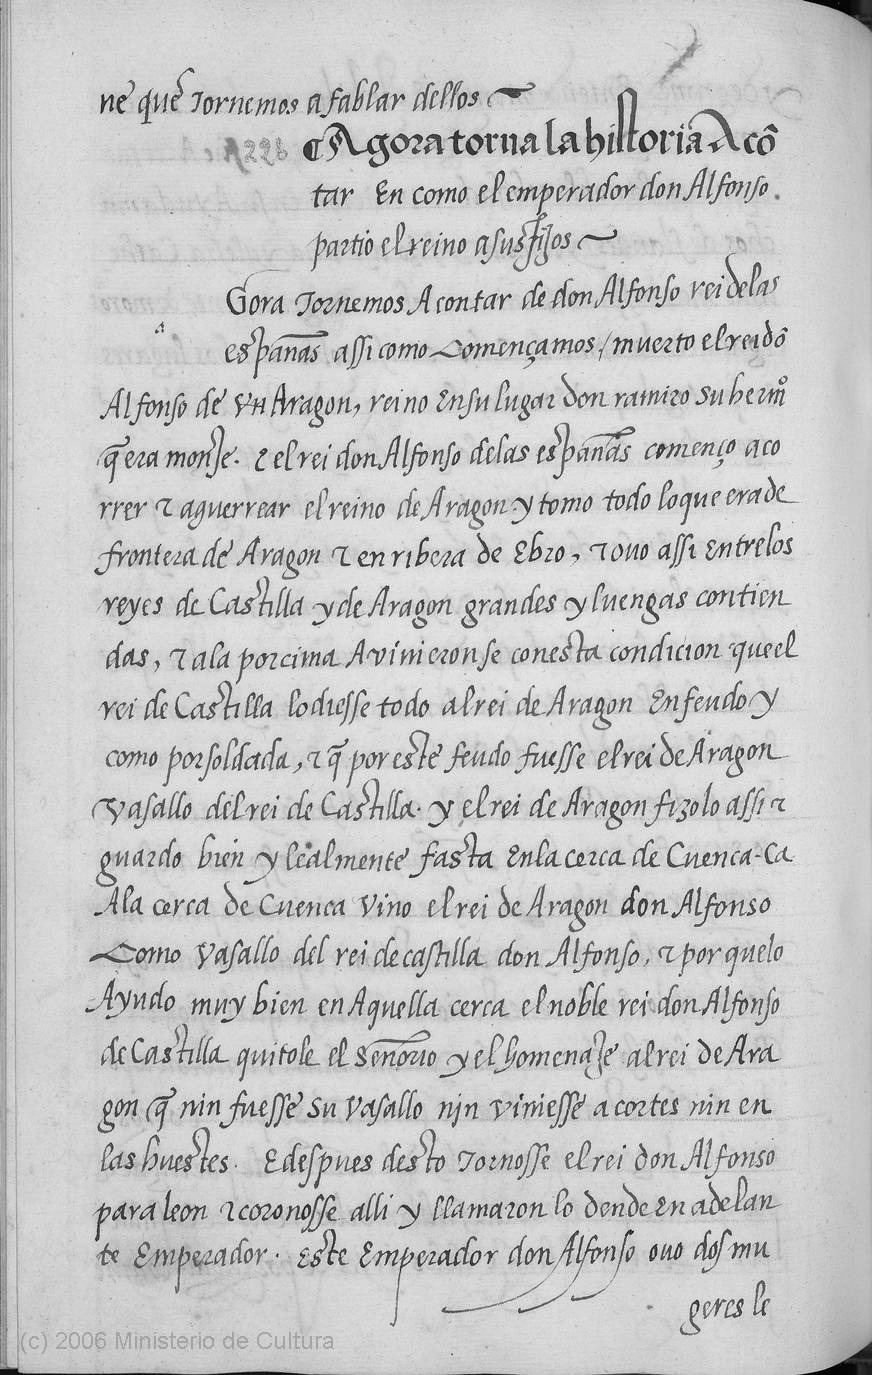 ne que tornemos a fablar dellos
Agora torna la historia A cõ
tar En como el emperador don Alfonso.
partio el reino a sus fijos
a
Gora Tornemos A contar de don Alfonso rei de las
españas assi como Començamos / muerto el rei dõ
Alfonso de VN Aragon, reino En su lugar don ramiro su hermº
q̃ era monje. τ el rei don Alfonso de las españas començo a co
rrer τ a guerrear el reino de Aragon y tomo todo lo que era de
frontera de Aragon τ en ribera de Ebro, τ ouo assi Entre los
reyes de Castilla y de Aragon grandes y luengas contien
das, τ a la por cima Avinieronse con esta condicion que el
rei de Castilla lo diesse todo al rei de Aragon En feudo y
como por soldada, τ q̃ por este feudo fuesse el rei de Aragon
Vasallo del rei de Castilla. y el rei de Aragon fizolo assi τ
guardo bien y lealmente fasta En la cerca de Cuenca. Ca
A la cerca de Cuenca Vino el rei de Aragon don Alfonso
Como Vasallo del rei de castilla don Alfonso, τ por que lo
Ayudo muy bien en Aquella cerca el noble rei don Alfonso
de Castilla quitole el Señorio y el homenaje al rei de Ara
gon q̃ nin fuesse su Vasallo nin viniesse a cortes nin en
las huestes. E despues desto Tornosse el rei don Alfonso
para leon τ coronosse alli y llamaron lo dende En adelan
te Emperador. Este Emperador don Alfonso ouo dos mu
geres le
(c) 2006 Ministerio de Cultura